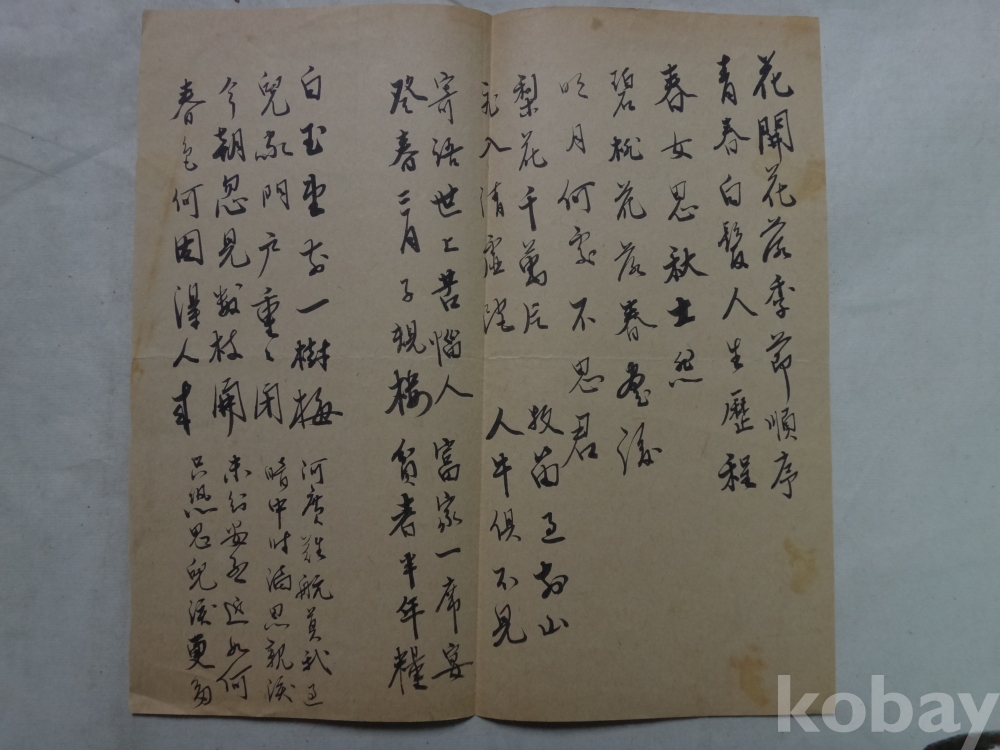 花開花落季節順序
青春白髮人生歷程
春女思秋士悲
碧桃花落春
明月何處不思君
梨花千萬片
飛入清虛院
牧笛过前山
人牛俱不見
寄語世上苦惱人
登春三月子規樓
富家一席宴
貧者半年糧
白玉堂前一樹梅
兒家門戶重〻閉
今朝忽見數枝開
春色何因得人來
河廣難航莫我过
暗中时滴思親淚
未知安否近如何
只恐思兒淚更多
kobay